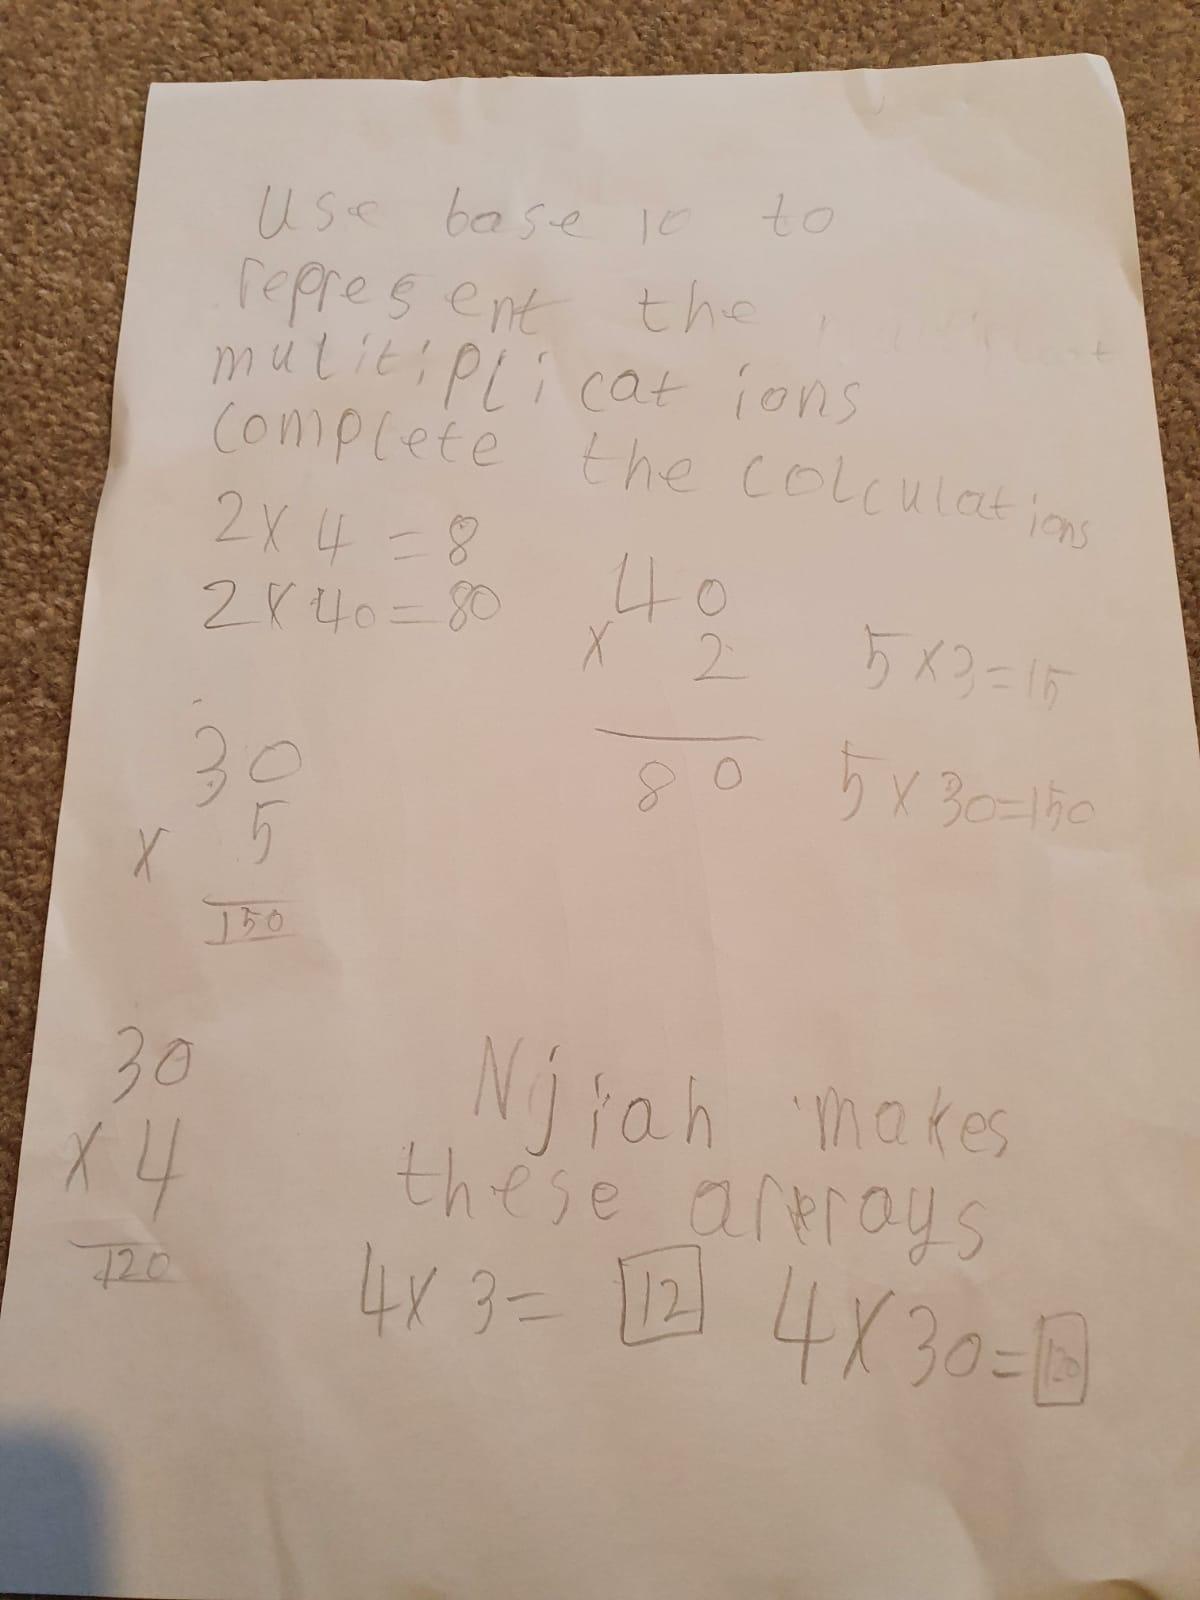 Use base 10 to
represent the
mulitiplications
complete the colculations
2x4 = 8
2x40=80
40
x 2
80
5x3=15
5x30=150
30
x 5
150
30
x 4
120
Njiah makes
these arrays
4x3= 12 4x30=120